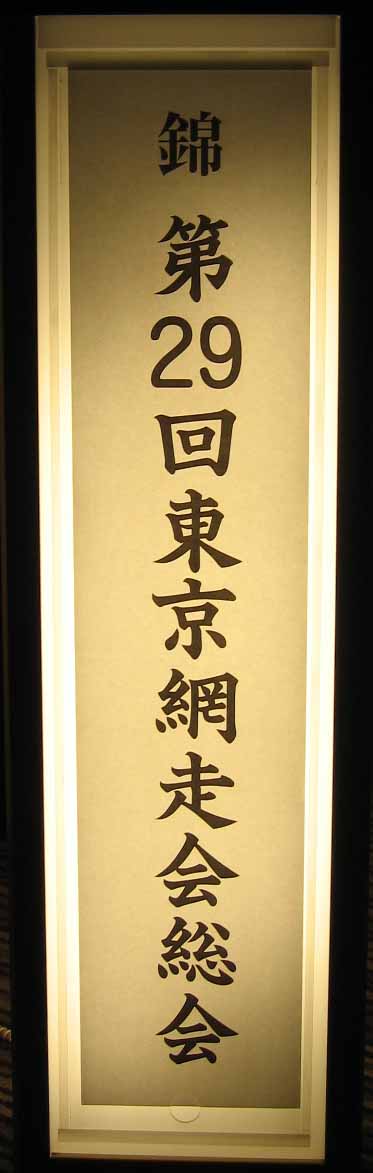 錦 第29回東京網走会総会